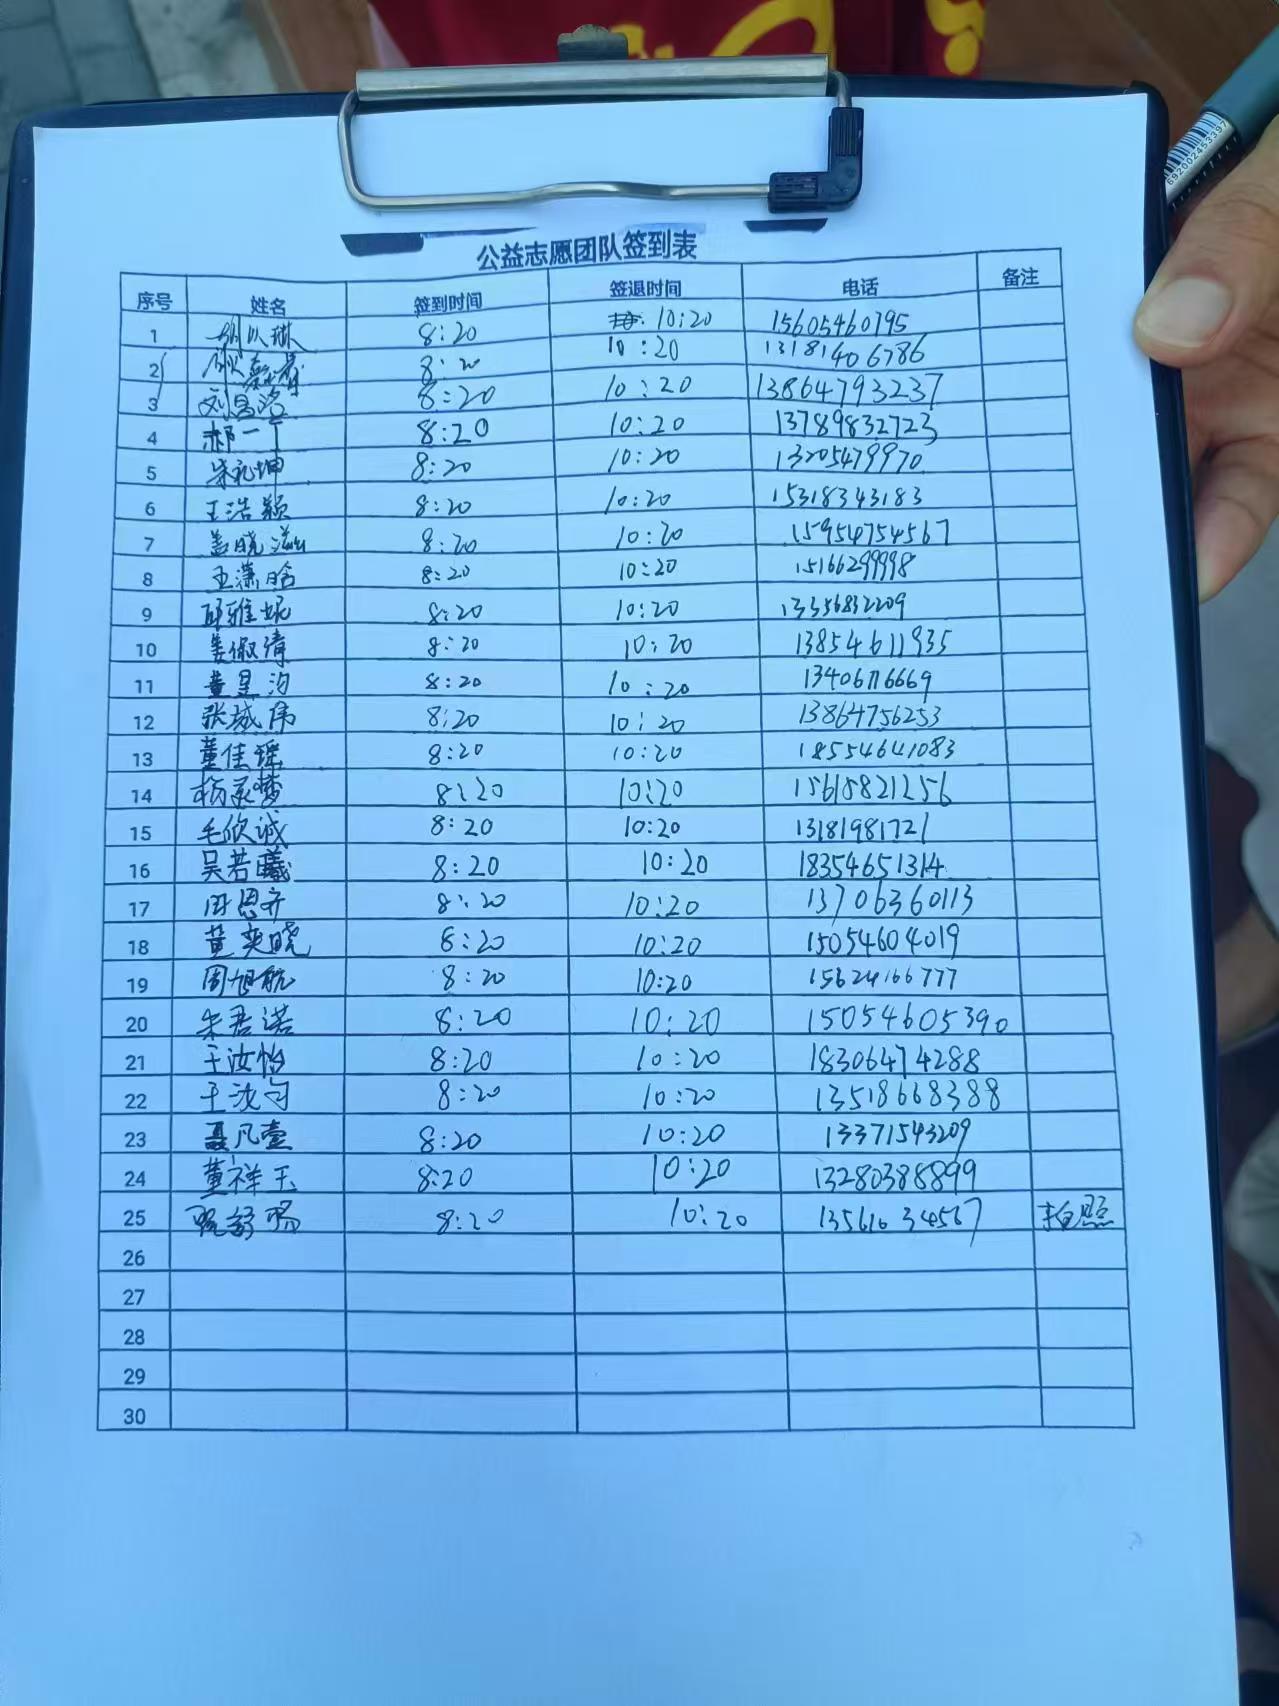 692002453397
公益志愿团队签到表
序号 姓名 签到时间 签退时间 电话 备注
1 8:20 10:20 15605460795
2 8:20 10:20 13181406786
3 刘昌洛 8:20 10:20 13864793237
4 郝一丁 8:20 10:20 13789832723
5 宋礼坤 8:20 10:20 13205479970
6 王浩颖 8:20 10:20 15318343183
7 盖晓滋 8:20 10:20 15954754567
8 王潇晗 8:20 10:20 15166299998
9 邱雅妮 8:20 10:20 13356832209
10 姜俶清 8:20 10:20 13854611935
11 黄星沟 8:20 10:20 13406116669
12 张城伟 8:20 10:20 13864756253
13 董佳瑶 8:20 10:20 18554641083
14 杨承梦 8:20 10:20 15615821256
15 毛欣诚 8:20 10:20 13181981721
16 吴若曦 8:20 10:20 18354651314
17 田恩齐 8:20 10:20 13706360113
18 黄奕晓 8:20 10:20 15054604019
19 周旭航 8:20 10:20 15624166777
20 朱君诺 8:20 10:20 15054605390
21 王汝怡 8:20 10:20 18306474288
22 王汝匀 8:20 10:20 13518668388
23 聂凡壹 8:20 10:20 13371543209
24 董祥玉 8:20 10:20 13280388899
25 8:20 10:20 13561034567 拍照
26
27
28
29
30